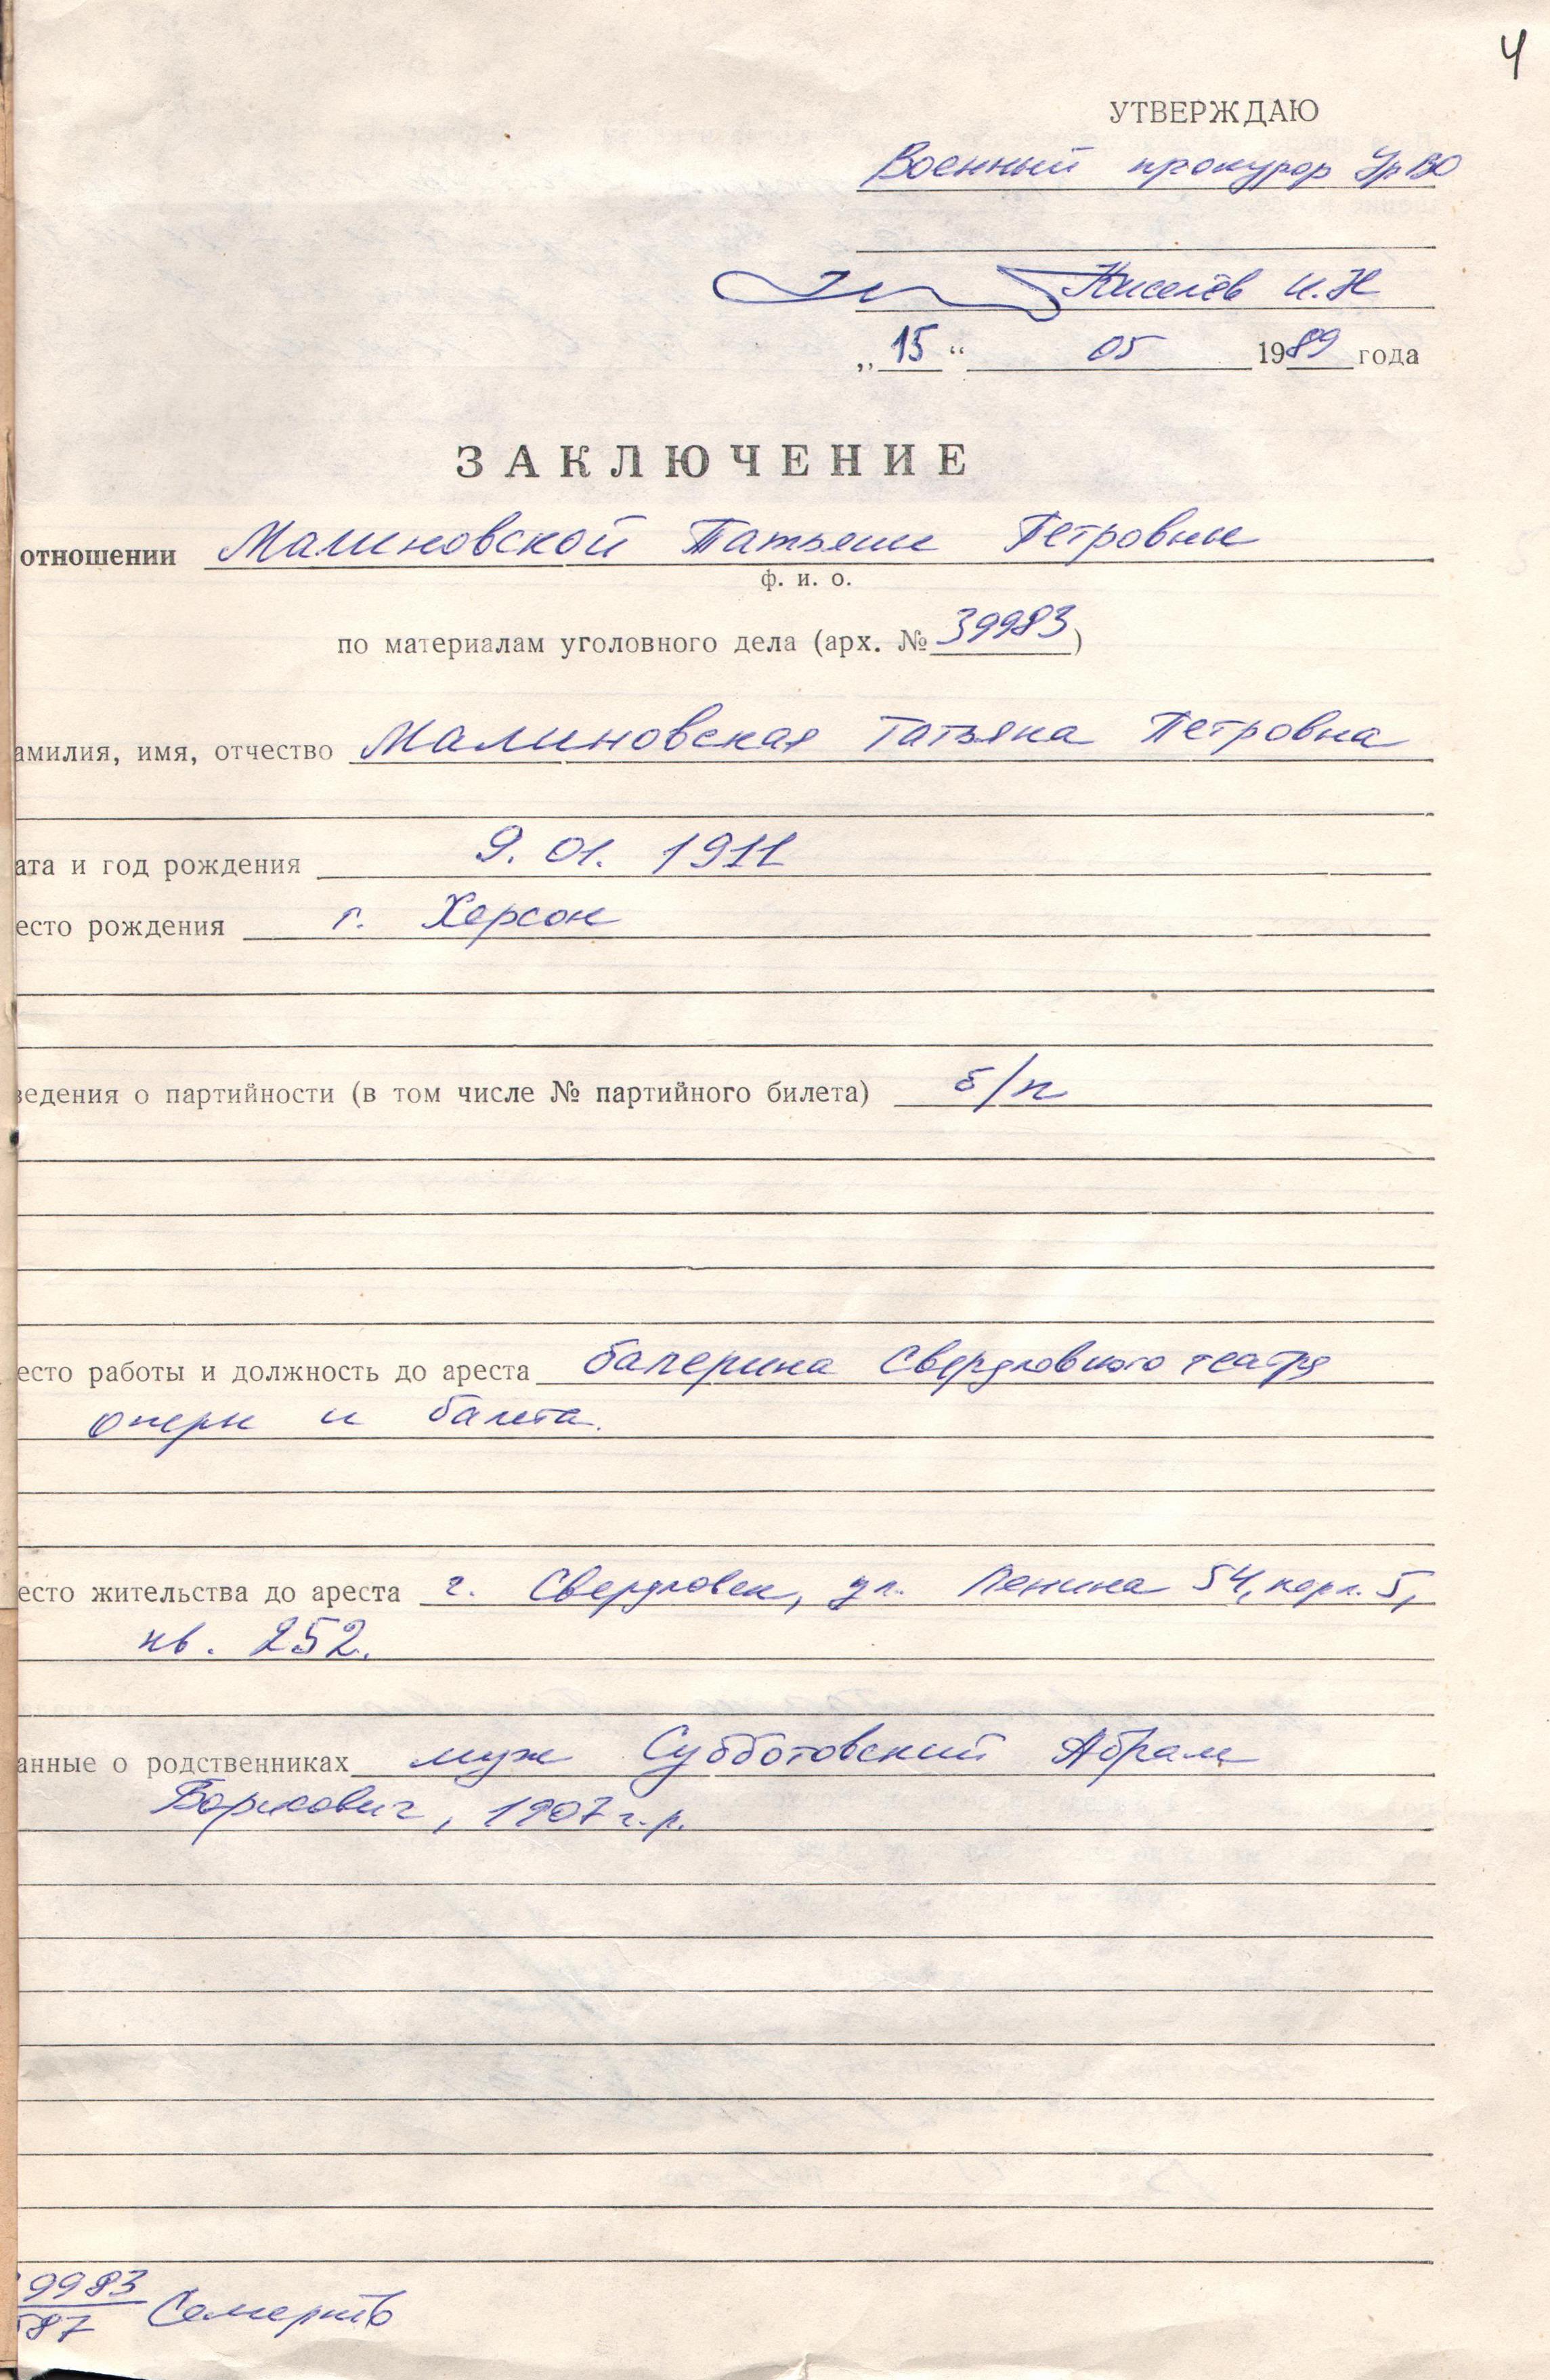 4
УТВЕРЖДАЮ
Военный прокурор УрВО
Киселёв И.Н
„15“ 05 1989 года
ЗАКЛЮЧЕНИЕ
отношении Малиновской Татьяны Петровны
ф. и. о.
по материалам уголовного дела (арх. № 39983)
амилия, имя, отчество Малиновская Татьяна Петровна
ата и год рождения 9. 01. 1911
есто рождения г. Херсон
ведения о партийности (в том числе № партийного билета) б/п
есто работы и должность до ареста балерина Свердловского театра
оперы и балета.
есто жительства до ареста г. Свердловск, ул. Ленина 54, корп. 5,
кв. 252.
анные о родственниках муж Субботовский Абрам
Борисович, 1907 г.р.
9983
87